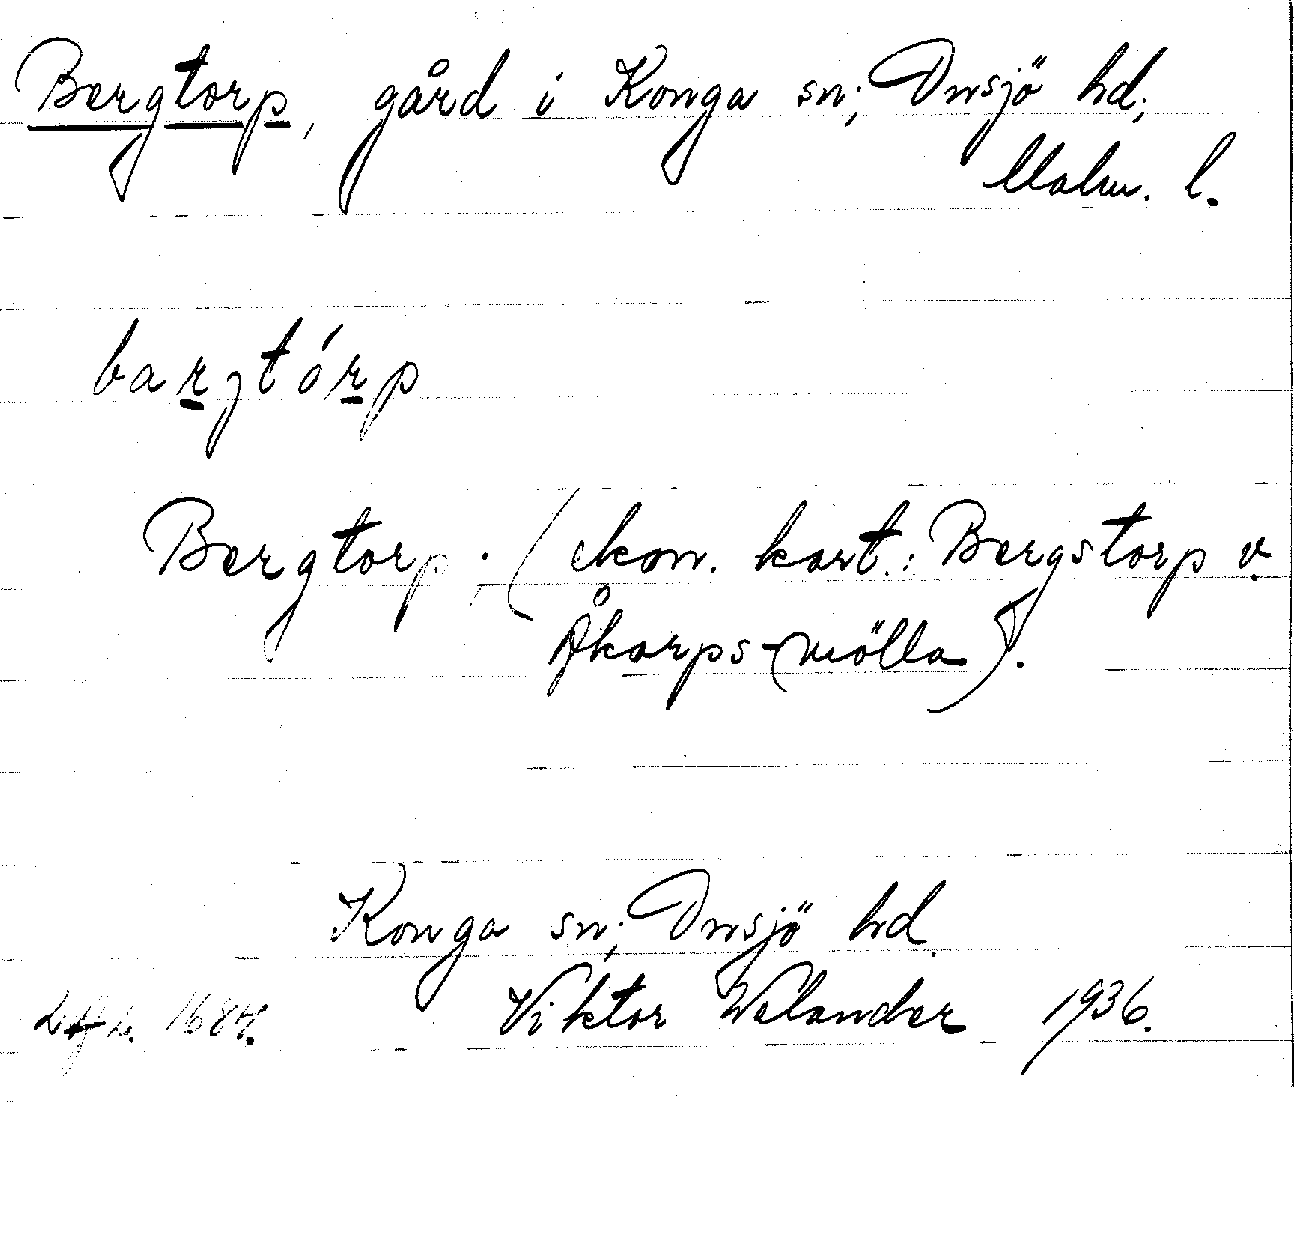 Bergtorp, gård i Konga sn; Onsjö hd;
Malm. l.
barjtórp
Bergtorp. (ekon. kart.: Bergstorp v.
Åkarps-mölla).
Konga sn; Onsjö hd.
Viktor Welander 1936.